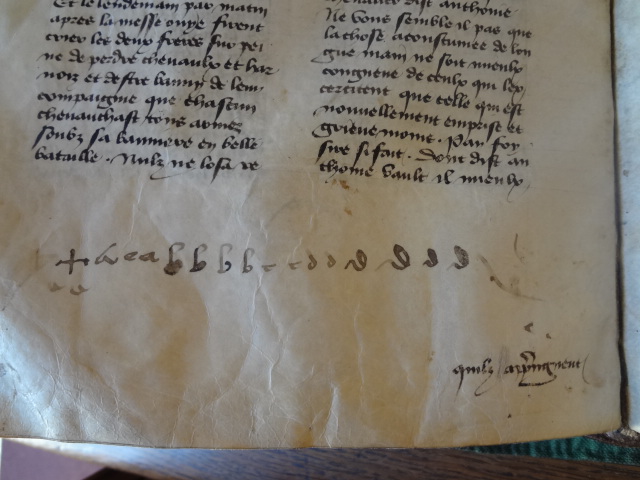 Et le lendemain par matin
apres la messe ouye firent
crier les deux freres sur pei
ne de perdre chevaulx et har
nois et destre banny de leur
compaignie que chascun
chevauchast tous armez
soubz sa banniere en belle
bataille . Nulz ne losa re
dist anthoine .
Ne vous semble il pas que
la chose acoustumee de lon
gue main ne soit mieulx
congneue de ceulx qui lex
cercitent que celle qui est
nouvellement emprise et
grieve moult . Par foy
sire si fait . Dont dist an
thoine vault il mieulx
+ a a a b b b b c c d d d d d d
quilz appreignent